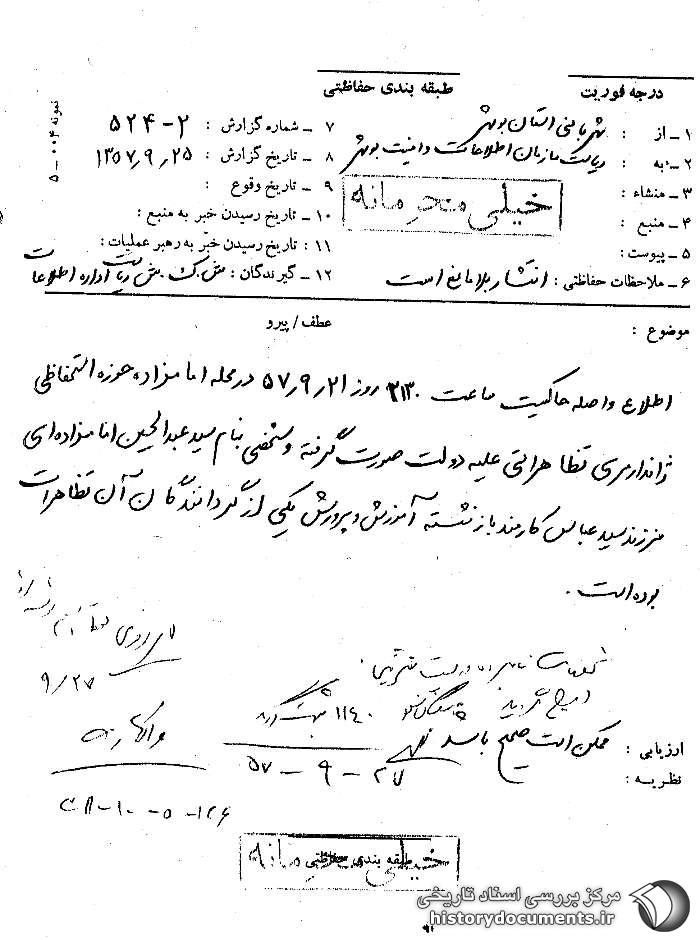 درجه فوریت
طبقه بندی حفاظتی
نمونه ۰۰۴ – ۵
۱ – از : شهربانی استان بوشهر
۷ – شماره گزارش : ۲–۵۲۴
۲ – به : ریاست سازمان اطلاعات و امنیت بوشهر
۸ – تاریخ گزارش : ۱۳۵۷٫۹٫۲۵
۳ – منشاء :
خیلی محرمانه
۹ – تاریخ وقوع :
۴ – منبع :
۱۰ – تاریخ رسیدن خبر به منبع :
۵ – پیوست :
۱۱ : تاریخ رسیدن خبر به رهبر عملیات :
۶ – ملاحظات حفاظتی : انتشار بلامانع است
۱۲ – گیرندگان : اداره اطلاعات
موضوع :
عطف / پیرو
اطلاع واصله حاکیست ساعت ۲۱۳۰ روز ۵۷٫۹٫۲۱ در محله امامزاده حوزه استحفاظی
ژاندارمری تظاهراتی علیه دولت صورت گرفته و شخصی بنام سید عبدالحسین امامزاده‌ای
فرزند سید عباس کارمند بازنشسته آموزش و پرورش یکی از گردانندگان آن تظاهرات
بوده است .
۹/۲۷
۱۱۴۰
ارزیابی : ممکن است صحیح باشد
نظریه :
۵۷ – ۹ – ۲۷
خیلی محرمانه
طبقه بندی حفاظتی
مرکز بررسی اسناد تاریخی
historydocuments.ir